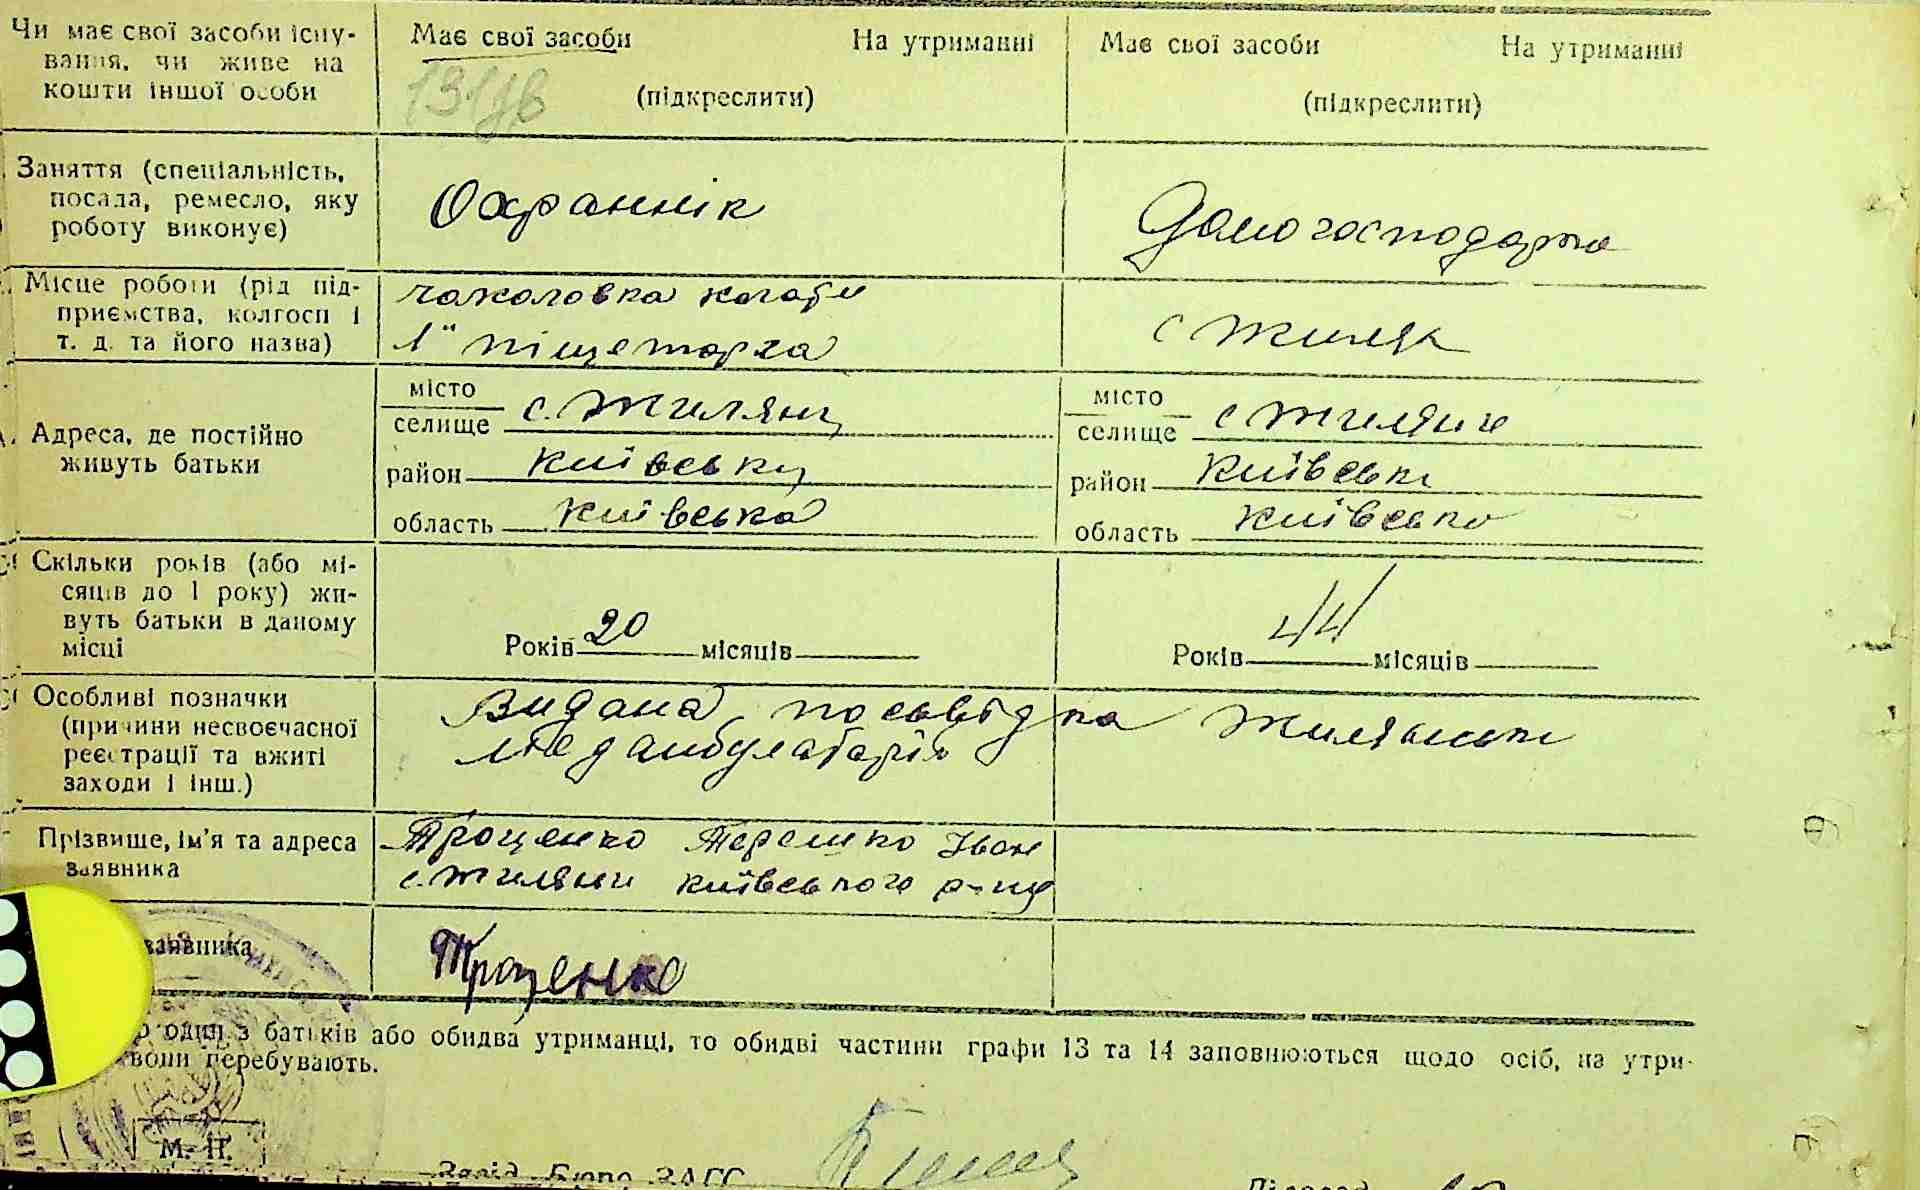 Чи має свої засоби існу-
вання, чи живе на
кошти іншої особи
Має свої засоби На утриманні
(підкреслити)
Має свої засоби На утриманні
(підкреслити)
Заняття (спеціальність,
посада, ремесло, яку
роботу виконує)
Охраннік
Домогосподарка
Місце роботи (рід під-
приємства, колгосп і
т. д. та його назва)
1" піщеторга
с Жиляни
Адреса, де постійно
живуть батьки
місто
селище с. Жиляни
район Київський
область Київська
місто
селище с Жиляни
район Київськи
область Київсько
Скільки років (або мі-
сяців до 1 року) жи-
вуть батьки в даному
місці
Років 20 місяців
Років 44 місяців
Особливі позначки
(причини несвоєчасної
реєстрації та вжиті
заходи і інш.)
Видана посьвідка Жилянськ
Медамбулаторія
Прізвище, ім'я та адреса
заявника
Троценко Терешко Іван
с. Жиляни Київського р-ну
заявника
Троценко
один з батьків або обидва утриманці, то обидві частини графи 13 та 14 заповнюються щодо осіб, на утри-
вони перебувають.
М. П.
Завід. Бюро ЗАГС